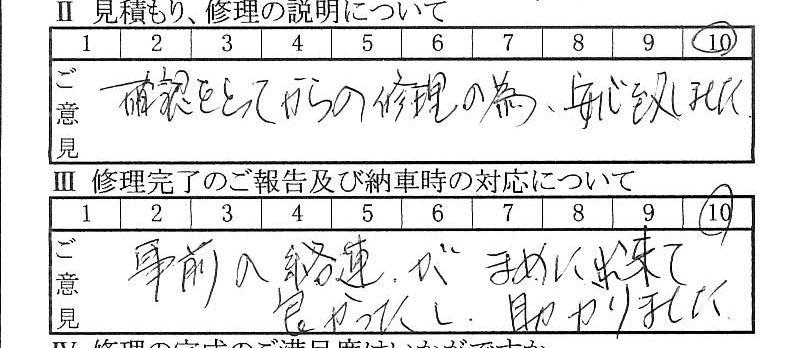 Ⅱ 見積もり、修理の説明について
1 2 3 4 5 6 7 8 9 10
ご意見
確認をとってからの修理の為、安心致しました
Ⅲ 修理完了のご報告及び納車時の対応について
1 2 3 4 5 6 7 8 9 10
ご意見
事前の経連.がまめに出来て
良かったし.助かりました
Ⅳ 修理の完成のご満足度はいかがですか